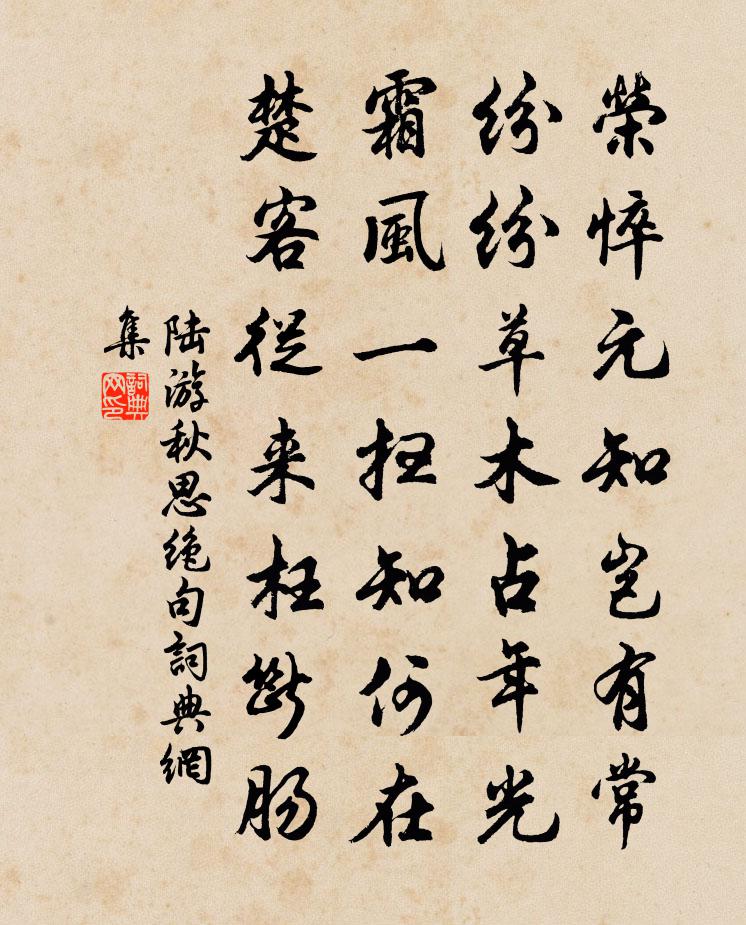 榮悴元知岂有常
纷纷草木占年光
霜風一扫知何在
楚客従来枉断肠
陆游秋思绝句詞典網
集
詞典
网印